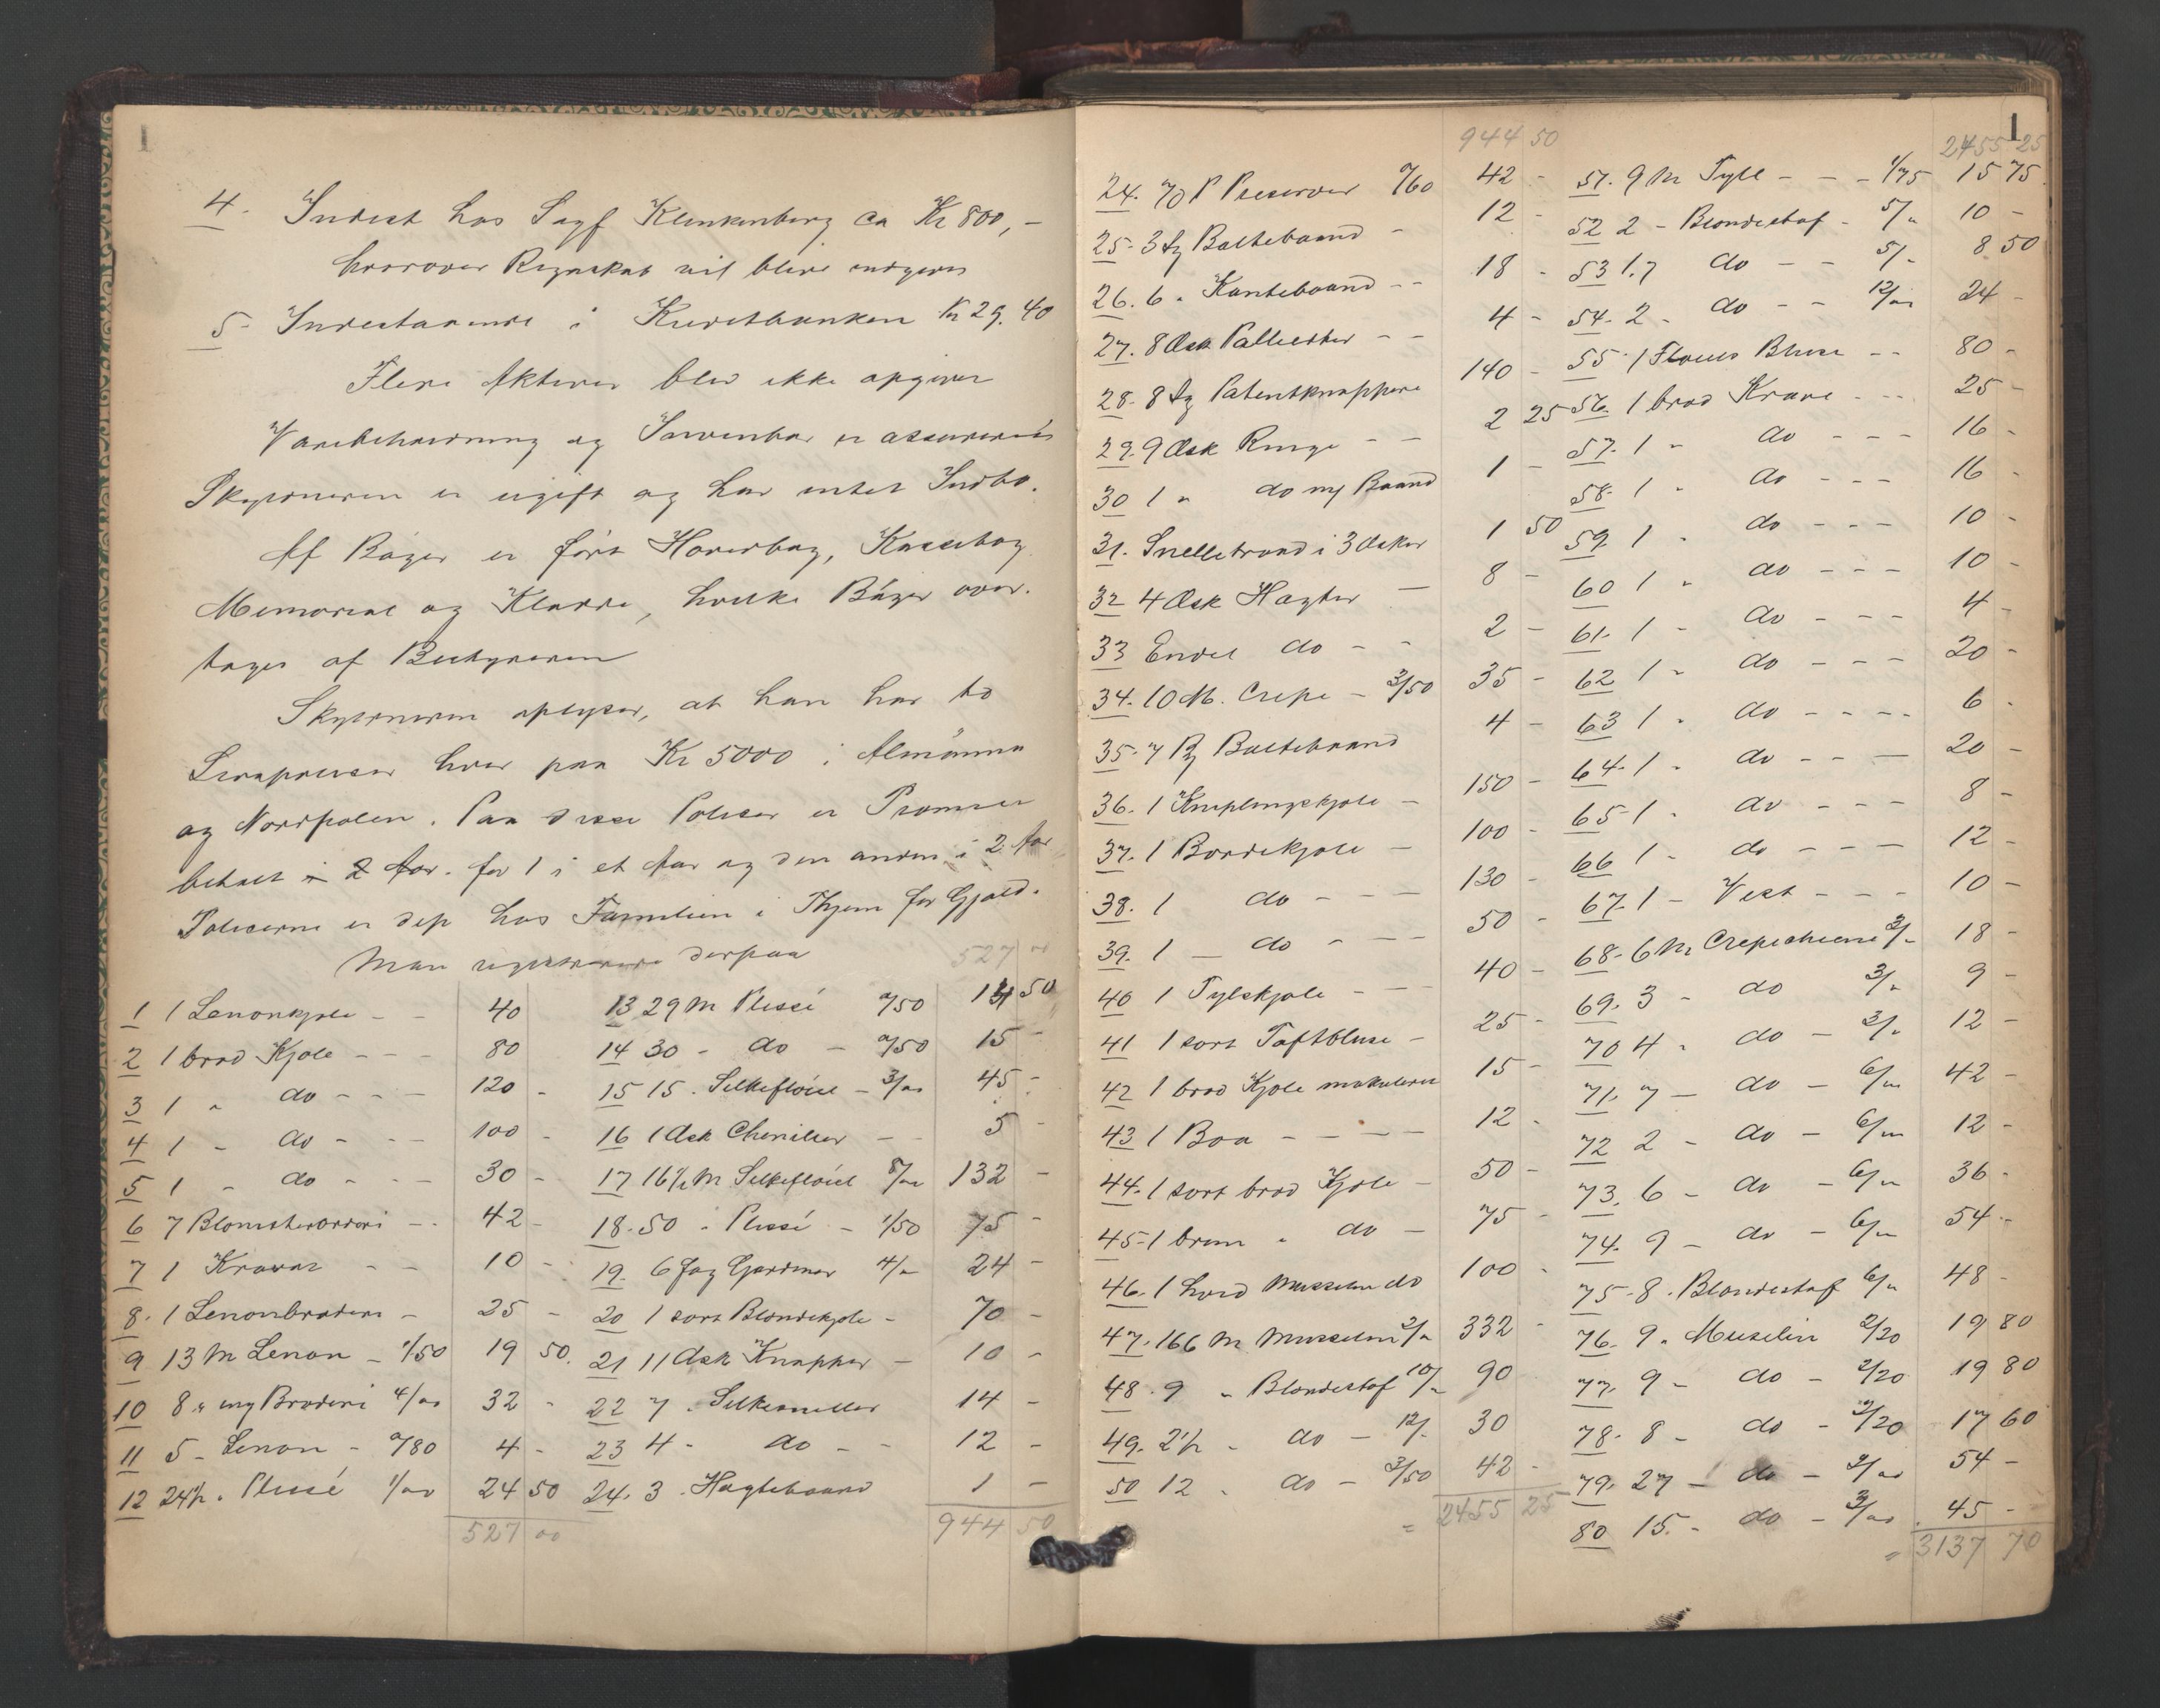 1
4. Indest hos Sagf Klinkenberg ca Kr 800,-
hvorover Regnskab vil blive indgivet
5- Indestaaende i Kreditbanken Kr 29.40
Flere Aktiver blev ikke opgivet
Varebeholdning og Inventar er assureret
Skyldneren er ugift og har intet Indbo.
Af Bøger er ført Hovedbog, Kassebog
Memorial og Kladde, hvilke Bøger over-
tages af Bestyreren
Skyldneren oplyser, at han har to
Livspoliser hver paa Kr 5000 i Almänna
og Nordpolen. Paa disse Poliser er Præmier
betalt i 2 Aar. for 1 i et Aar og den anden i 2 Aar
Poliserne er dep hos Familien i Thjem for Gjæld.
Man registrerede derpaa
527
1 1 Lenonkjole - - 40
2 1 brod Kjole - - - 80
3 1 " do - - - 120 -
4 1 - do - - - 100 -
5 1 " do - - - 30 -
6 7 Blomsterbroderi - - 42 -
7 1 Kravat - - 10 -
8. 1 Lenonbroderi - 25 -
9 13 M Lenon - 1/50 19 50.
10 8 " my Broderi 4/00 32 -
11 5 - Lenon - 0/80 4 -
12 24½ " Plissé 1/00 24 50
527 00
13 29 M Plissé 0/50 14 50
14 30 - do - 0/50 15 -
15 15 . Silkefløiel - 3/00 45 -
16 1 Æsk Cheniller - - 5 -
17 16½ M Silkefløiel 8/00 132 -
18. 50 . Plissé - 1/50 75 -
19. 6 Fag Gardiner 4/" 24 -
20 1 sort Blondekjole - 70 -
21 11 Æsk Knapper - 10 -
22 7 . Silkesneller 14 -
23 4 - do - - 12 -
24. 3 . Hagtebaand 1 -
944 50
944 50
24. 70 P Preserver 0/60 42 -
25. 3 St Beltebaand - 12 -
26. 6 " Kantebaand - - 18 -
27. 8 Æsk Pallietter - - 4 -
28. 8 St Patentknappere 140 -
29. 9 Æsk Ringe - - 2 25
30 1 " do my Baand 1 -
31. Snelletraad i 3 Æsker 1 50
32 4 Æsk Hagter - 8 -
33 Endel do - - 2 -
34. 10 M. Crepe - 3/50 35 -
35. 7 St Beltebaand 4 -
36. 1 Kniplingskjole - 150 -
37. 1 Brodekjole - 100 -
38. 1 do - - - 130 -
39. 1 - do - - - 50 -
40 1 Tylskjole - - - 40 -
41 1 sort Taftbluse - 25 -
42 1 brod Kjole makuleret 15 -
43 1 Boa - - - - 12 -
44. 1 sort brod Kjole - 50 -
45. 1 brun " do - 75 -
46. 1 hvid Musselin do 100 -
47. 166 M Musselin 2/" 332 -
48. 9 " Blondestof 10/" 90
49. 2½ - do - 12/- 30
50 12 . do - 3/50 42 -
= 2455 25
1
2455 25
51. 9 M Tyll - - - 1/75 15 75
52 2 - Blondestof - 5/" 10 -
53 1.7 do - - 5/- 8 50
54. 2 - do - - 12/00 24 -
55. 1 Flouls Bluse - - 80 -
56. 1 brod Krave - - - 25 -
57. 1 " do - - - 16 -
58. 1 " do - - - 16 -
59 1 . do - - - 10 -
60 1 " do - - - 10 -
61. 1 - do - - - 4 -
62 1 - do - - - 20 -
63 1 . do - - - - 6 -
64. 1 . do - - - 20 -
65 1 . do - - - 8 -
66 1 - do - - - 12 -
67. 1 - Vest - - - 10 -
68. 6 M Crepechine 3/- 18 -
69. 3 - do 3/" 9 -
70 4 . do - 3/- 12 -
71. 7 - do - 6/00 42 -
72 2 - do - 6/00 12 -
73. 6 - do - 6/" 36 -
74. 9 - do - 6/" 54 -
75. 8 . Blondestof 6/" 48 -
76. 9 " Muselin 2/20 19 80
77. 9 - do - 2/20 19 80
78. 8 - do - 2/20 17 60
79. 27 - do - 2/00 54 -
80 15. - do - 3/00 45 -
= 3137 70